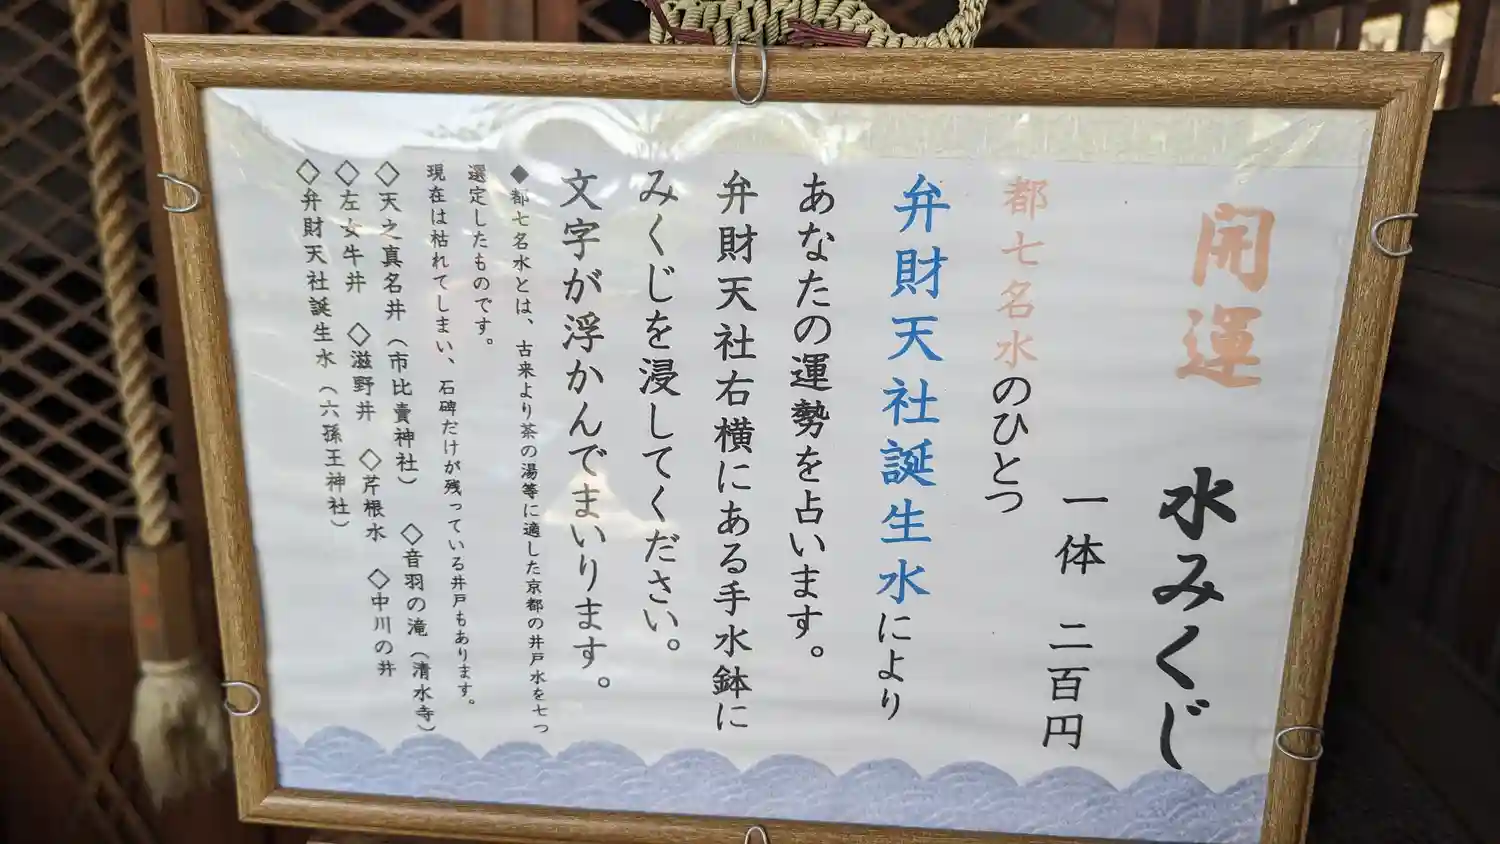 開運　水みくじ
一体　二百円
都七名水のひとつ
弁財天社誕生水により
あなたの運勢を占います。
弁財天社右横にある手水鉢に
みくじを浸してください。
文字が浮かんでまいります。
◆都七名水とは、古来より茶の湯等に適した京都の井戸水を七つ
選定したものです。
現在は枯れてしまい、石碑だけが残っている井戸もあります。
◇天之真名井（市比賣神社）　◇音羽の滝（清水寺）
◇左女牛井　◇滋野井　◇芹根水　◇中川の井
◇弁財天社誕生水（六孫王神社）